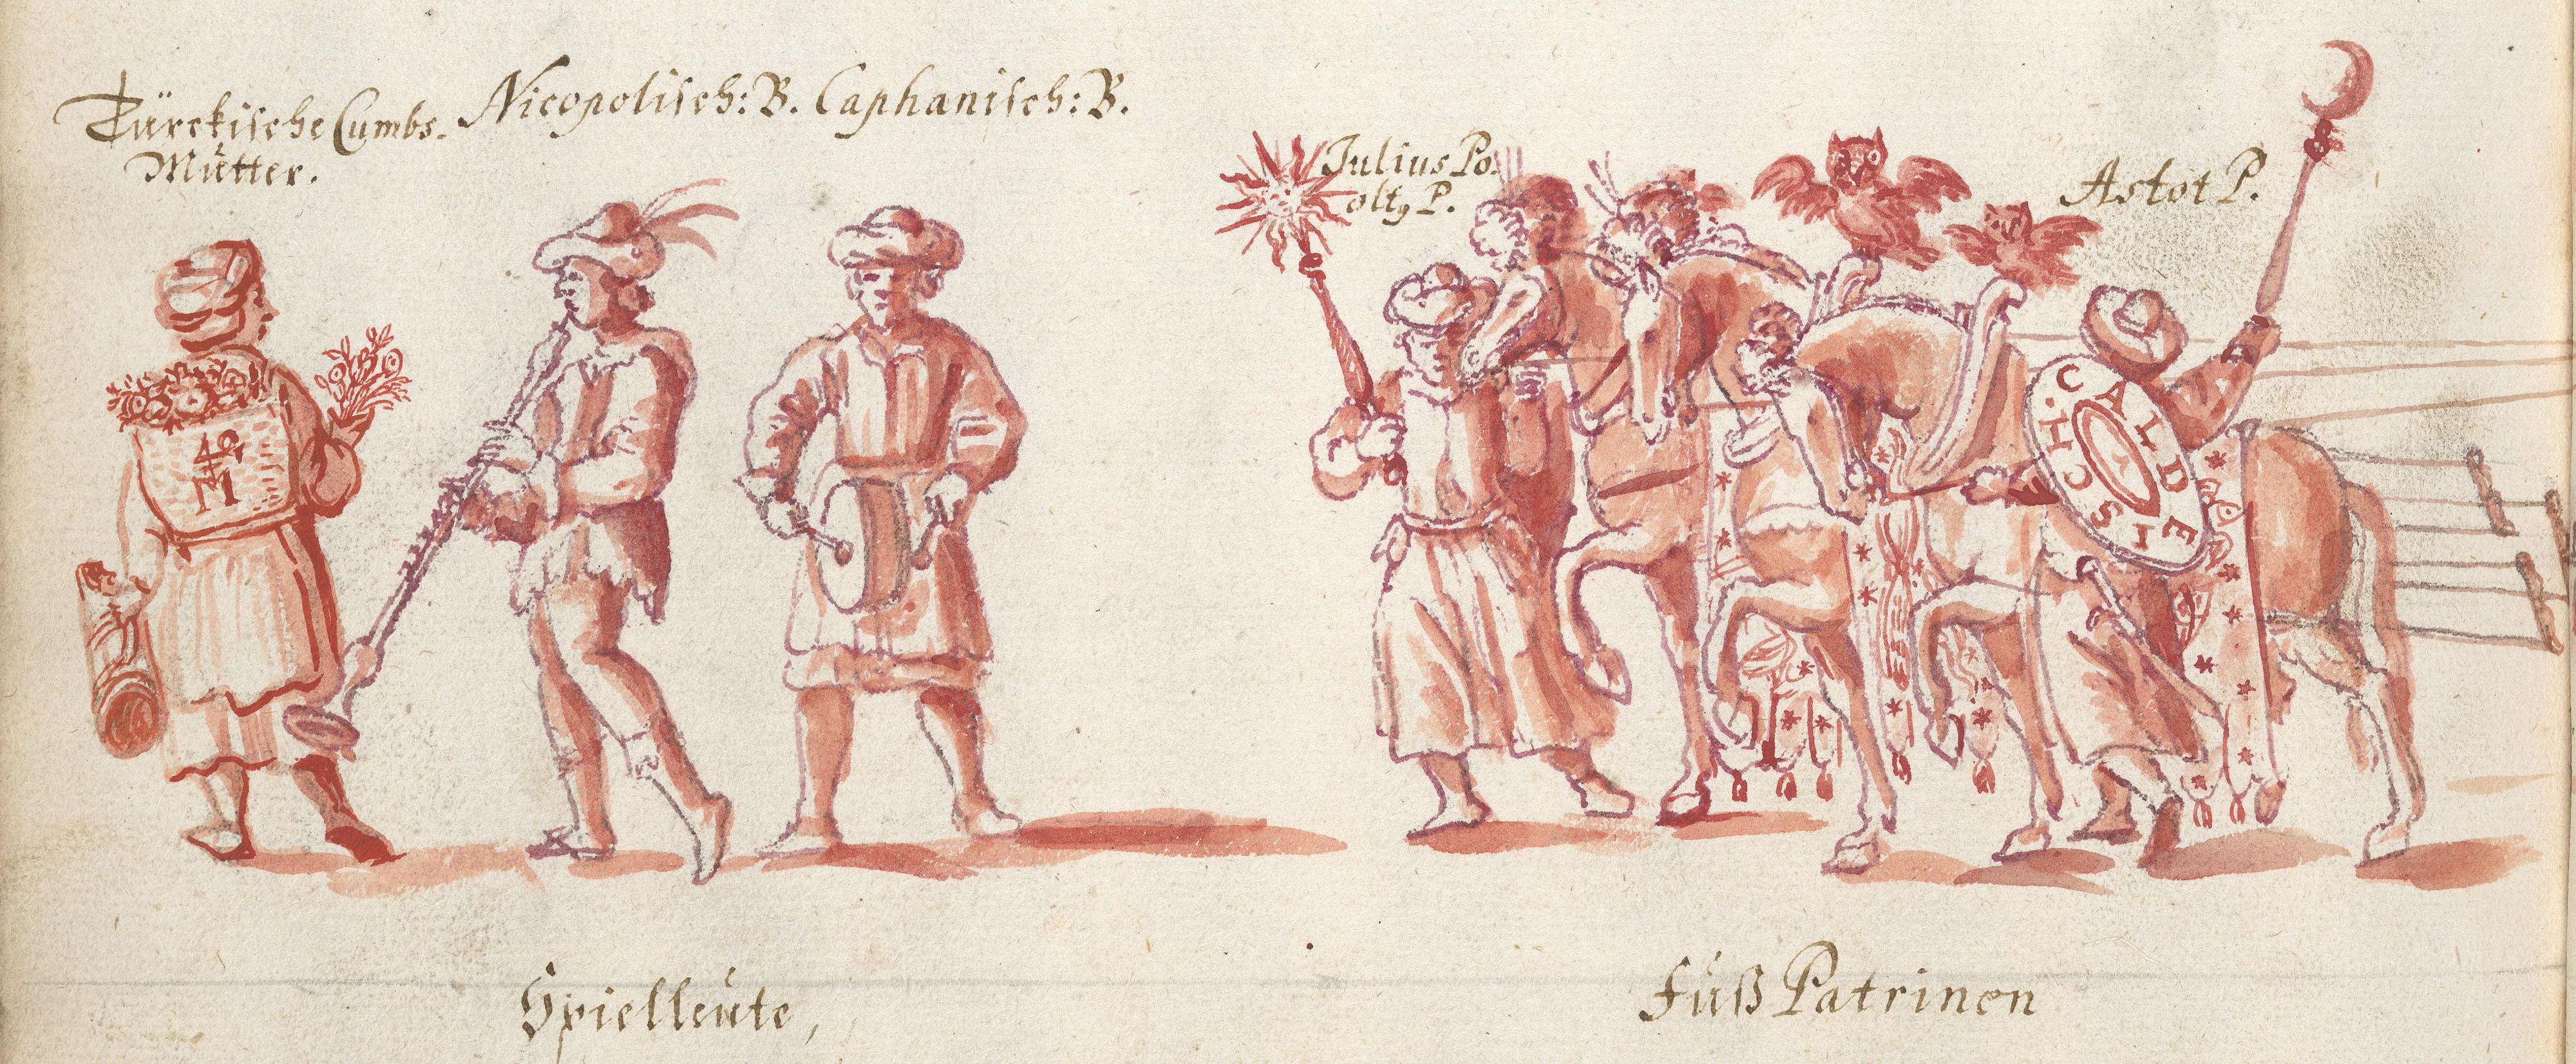 Türckische Cumbs-
Mütter.
Nicopolisch: B. Caphanisch: B.
Julius Po.
P.
Astot P.
M
CALDEISCH.C
Spielleüte,
Füß Patrinen